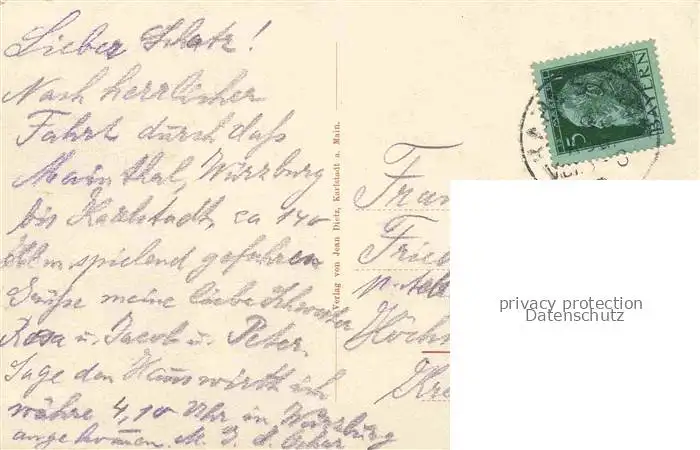 Lieber Schatz!
Nach herrlicher
Fahrt durch daß
Mainthal, Würzburg
bis Karlstadt, ca 140
Klm spielend gefahren
Grüße meine liebe Schwester
Rosa u. Jacob u. Peter.
Sage den Hauswirth ich
währe 4,10 Uhr in Würzburg
angekommen.
Verlag von Jean Dietz, Karlstadt a. Main.
5
BAYERN
Frau
Fried
Höchs
Kre
privacy protection
Datenschutz